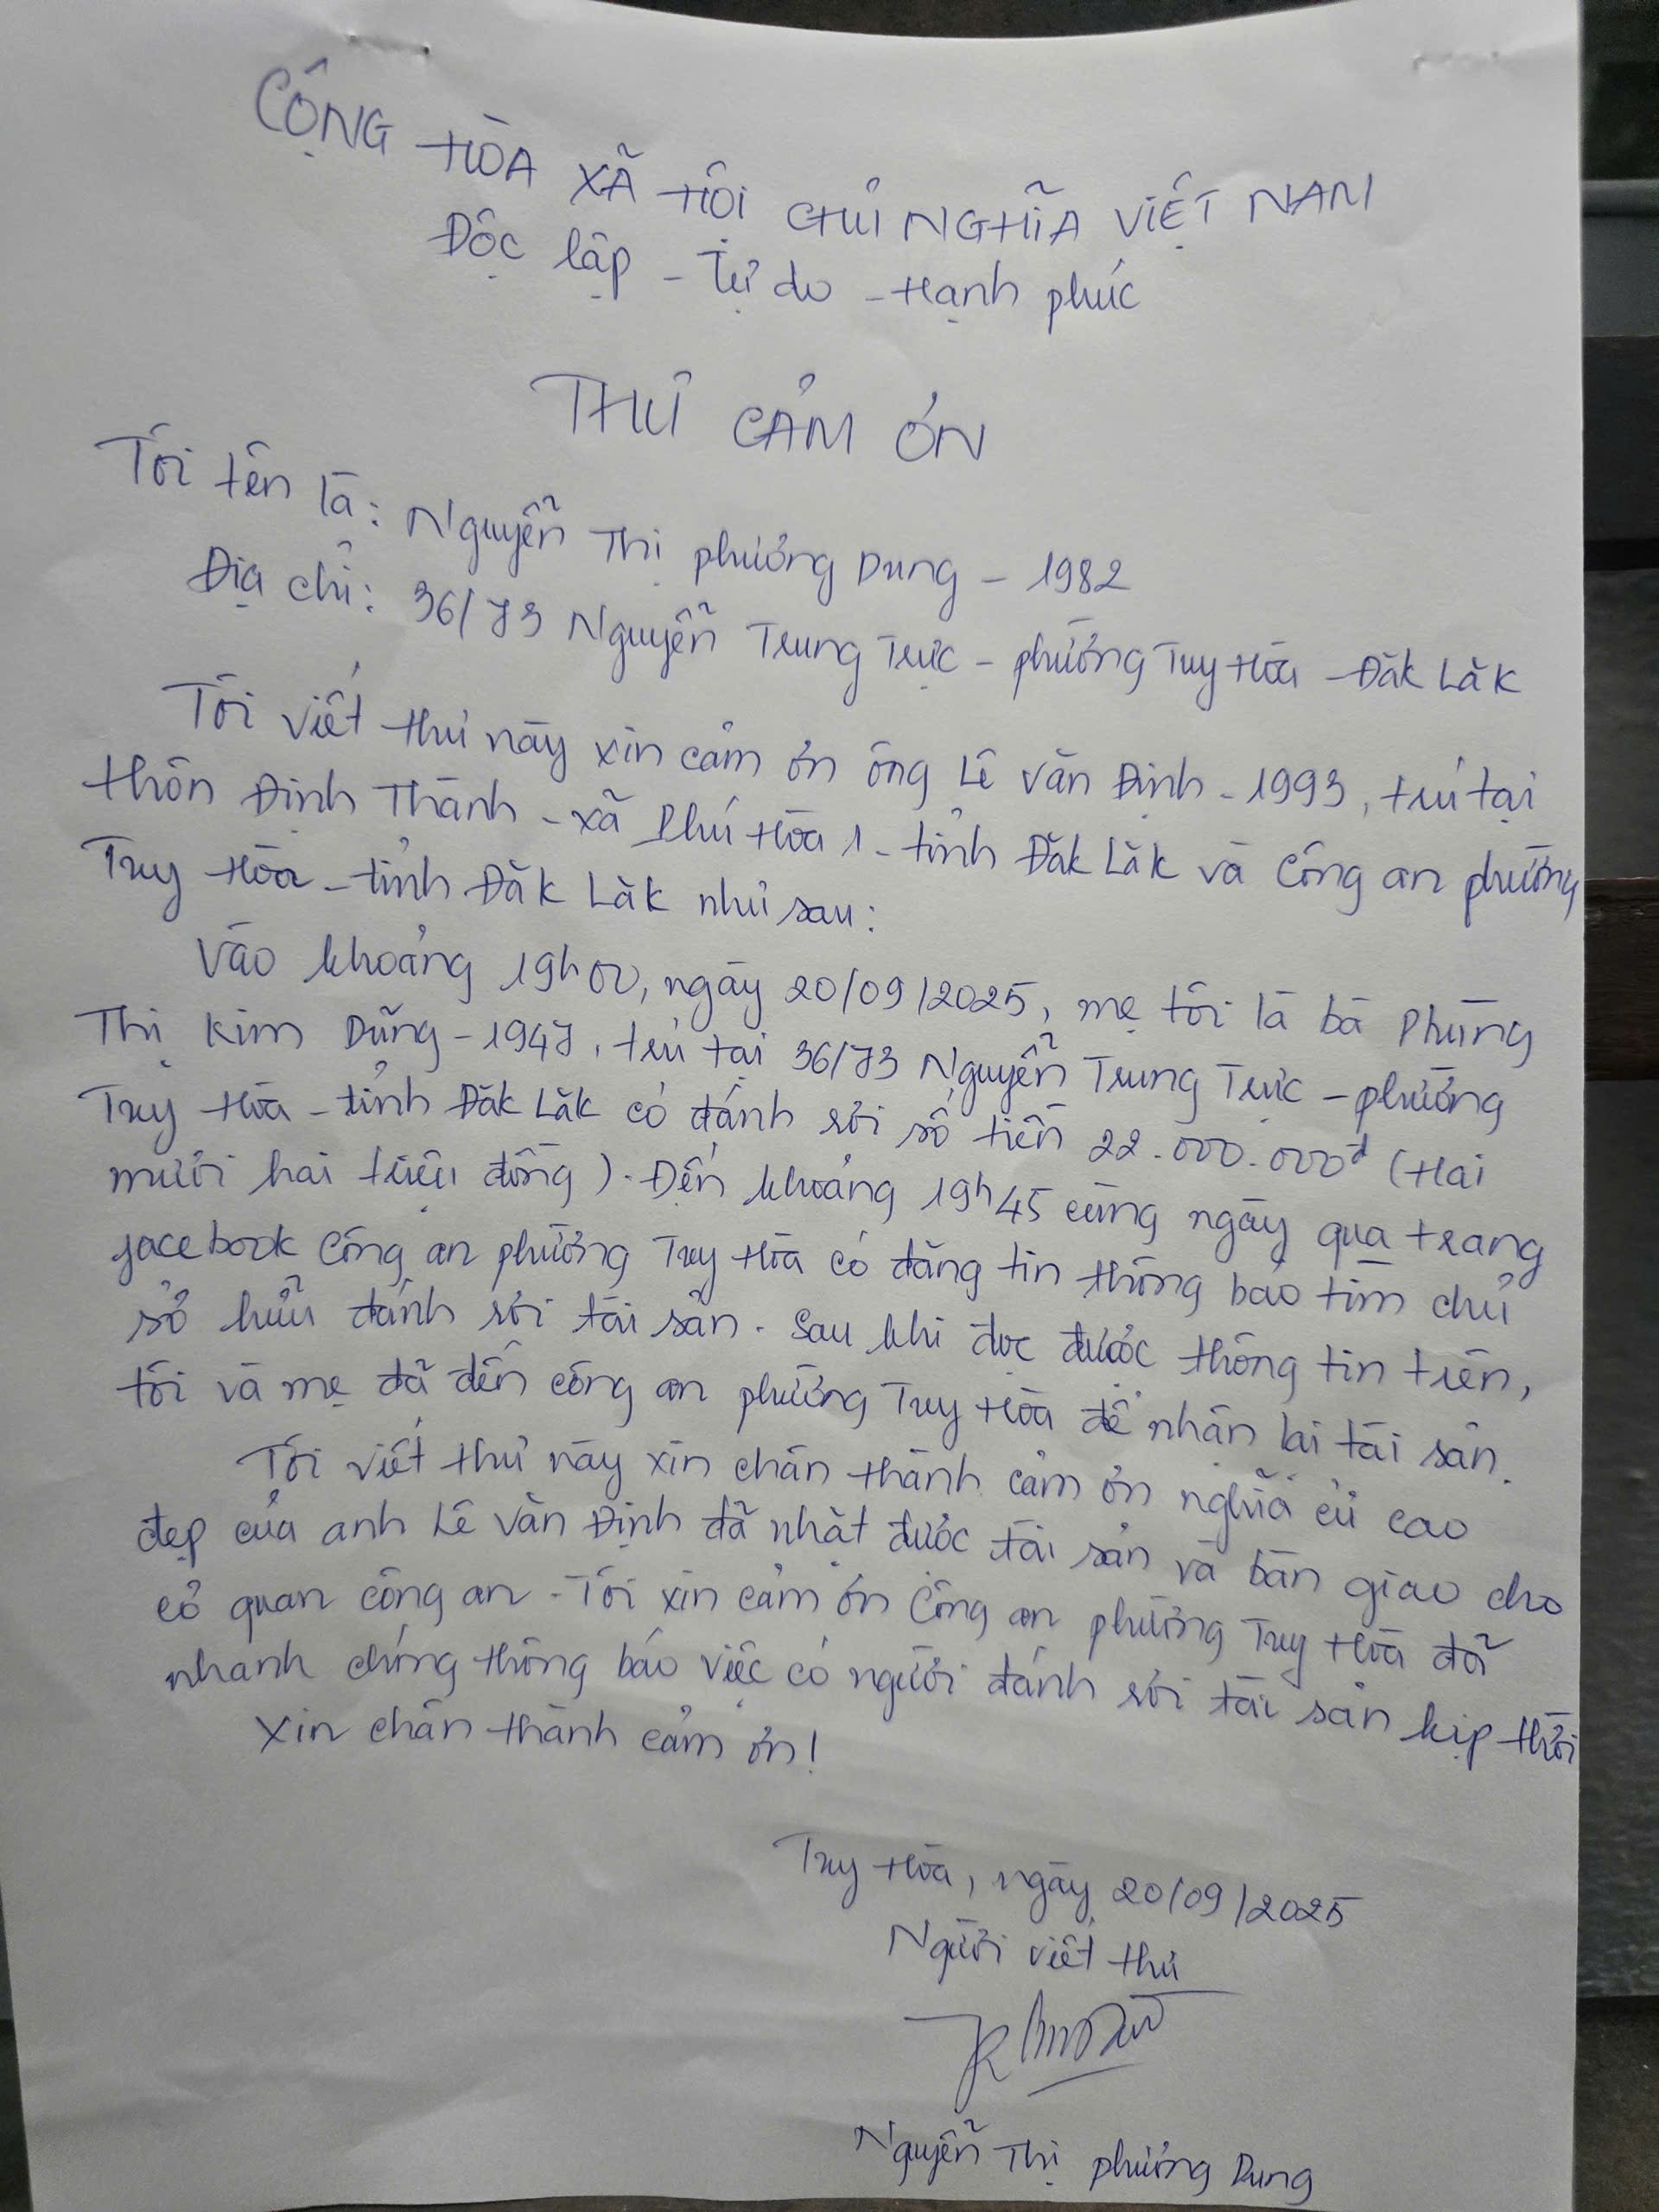 CỘNG HÒA XÃ HỘI CHỦ NGHĨA VIỆT NAM
Độc lập - Tự do - Hạnh phúc
THƯ CẢM ƠN
Tôi tên là: Nguyễn Thị Phương Dung - 1982
Địa chỉ: 36/73 Nguyễn Trung Trực - phường Tuy Hòa - Đăk Lăk
Tôi viết thư này xin cảm ơn ông Lê Văn Định - 1993, trú tại
thôn Định Thành - xã Phú Hòa 1 - tỉnh Đăk Lăk và Công an phường
Tuy Hòa - tỉnh Đăk Lăk như sau:
Vào khoảng 19h00, ngày 20/09/2025, mẹ tôi là bà Phùng
Thị Kim Dũng - 1947, trú tại 36/73 Nguyễn Trung Trực - phường
Tuy Hòa - tỉnh Đăk Lăk có đánh rơi số tiền 22.000.000đ (Hai
mươi hai triệu đồng). Đến khoảng 19h45 cùng ngày qua trang
facebook Công an phường Tuy Hòa có đăng tin thông báo tìm chủ
sở hữu đánh rơi tài sản. Sau khi đọc được thông tin trên,
tôi và mẹ đã đến công an phường Tuy Hòa để nhận lại tài sản.
Tôi viết thư này xin chân thành cảm ơn nghĩa cử cao
đẹp của anh Lê Văn Định đã nhặt được tài sản và bàn giao cho
cơ quan công an. Tôi xin cảm ơn Công an phường Tuy Hòa đã
nhanh chóng thông báo việc có người đánh rơi tài sản kịp thời
Xin chân thành cảm ơn!
Tuy Hòa, ngày 20/09/2025
Người viết thư
Nguyễn Thị Phương Dung